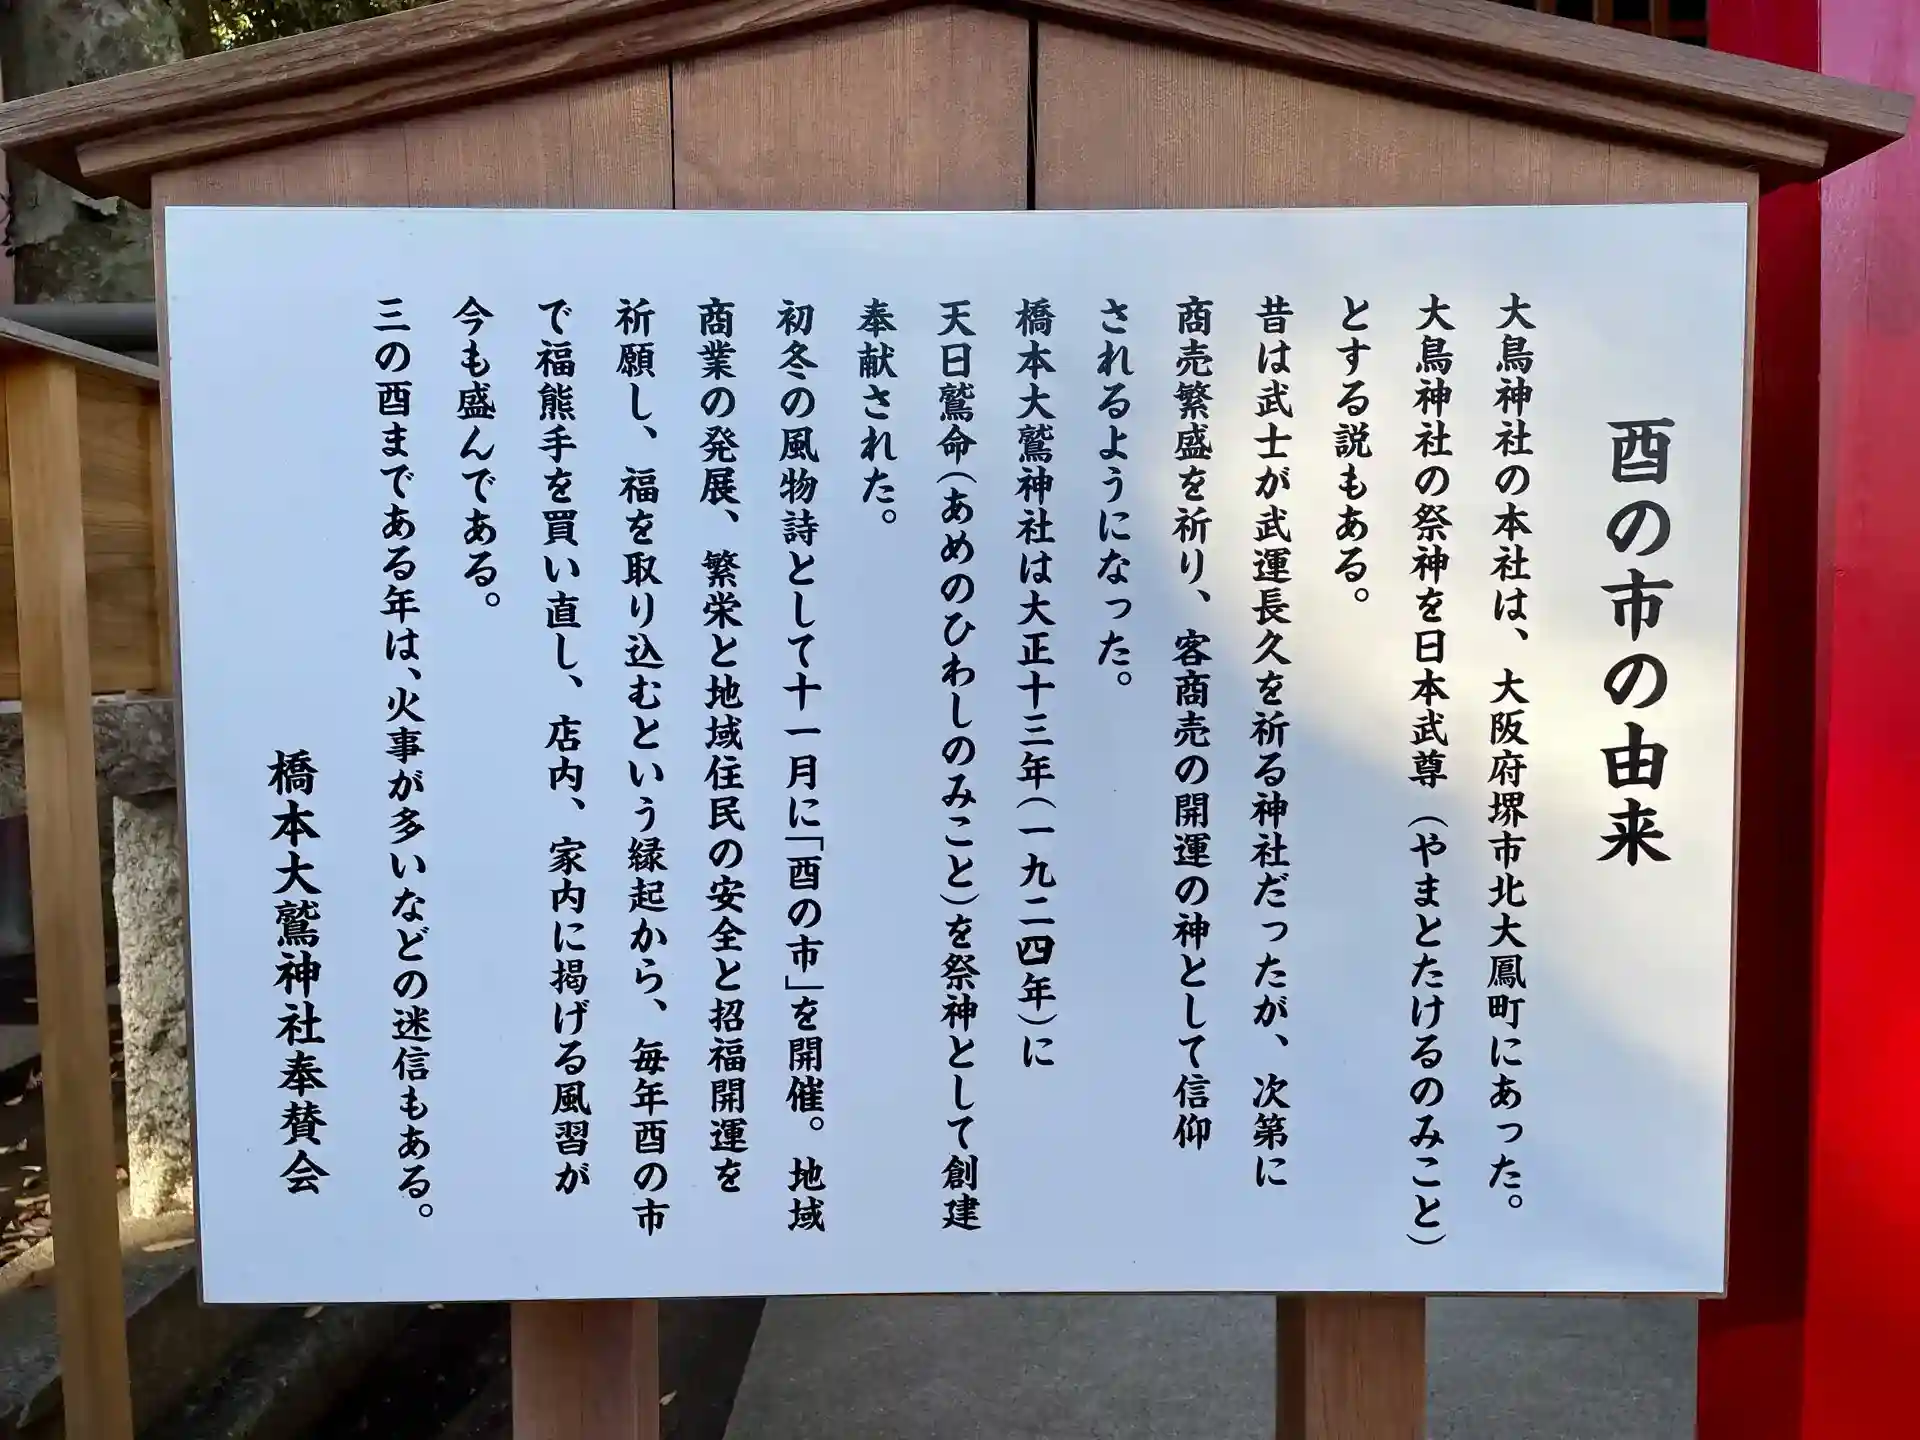 酉の市の由来
大鳥神社の本社は、大阪府堺市北大鳳町にあった。
大鳥神社の祭神を日本武尊（やまとたけるのみこと）
とする説もある。
昔は武士が武運長久を祈る神社だったが、次第に
商売繁盛を祈り、客商売の開運の神として信仰
されるようになった。
橋本大鷲神社は大正十三年（一九二四年）に
天日鷲命（あめのひわしのみこと）を祭神として創建
奉献された。
初冬の風物詩として十一月に「酉の市」を開催。地域
商業の発展、繁栄と地域住民の安全と招福開運を
祈願し、福を取り込むという縁起から、毎年酉の市
で福熊手を買い直し、店内、家内に掲げる風習が
今も盛んである。
三の酉まである年は、火事が多いなどの迷信もある。
橋本大鷲神社奉賛会